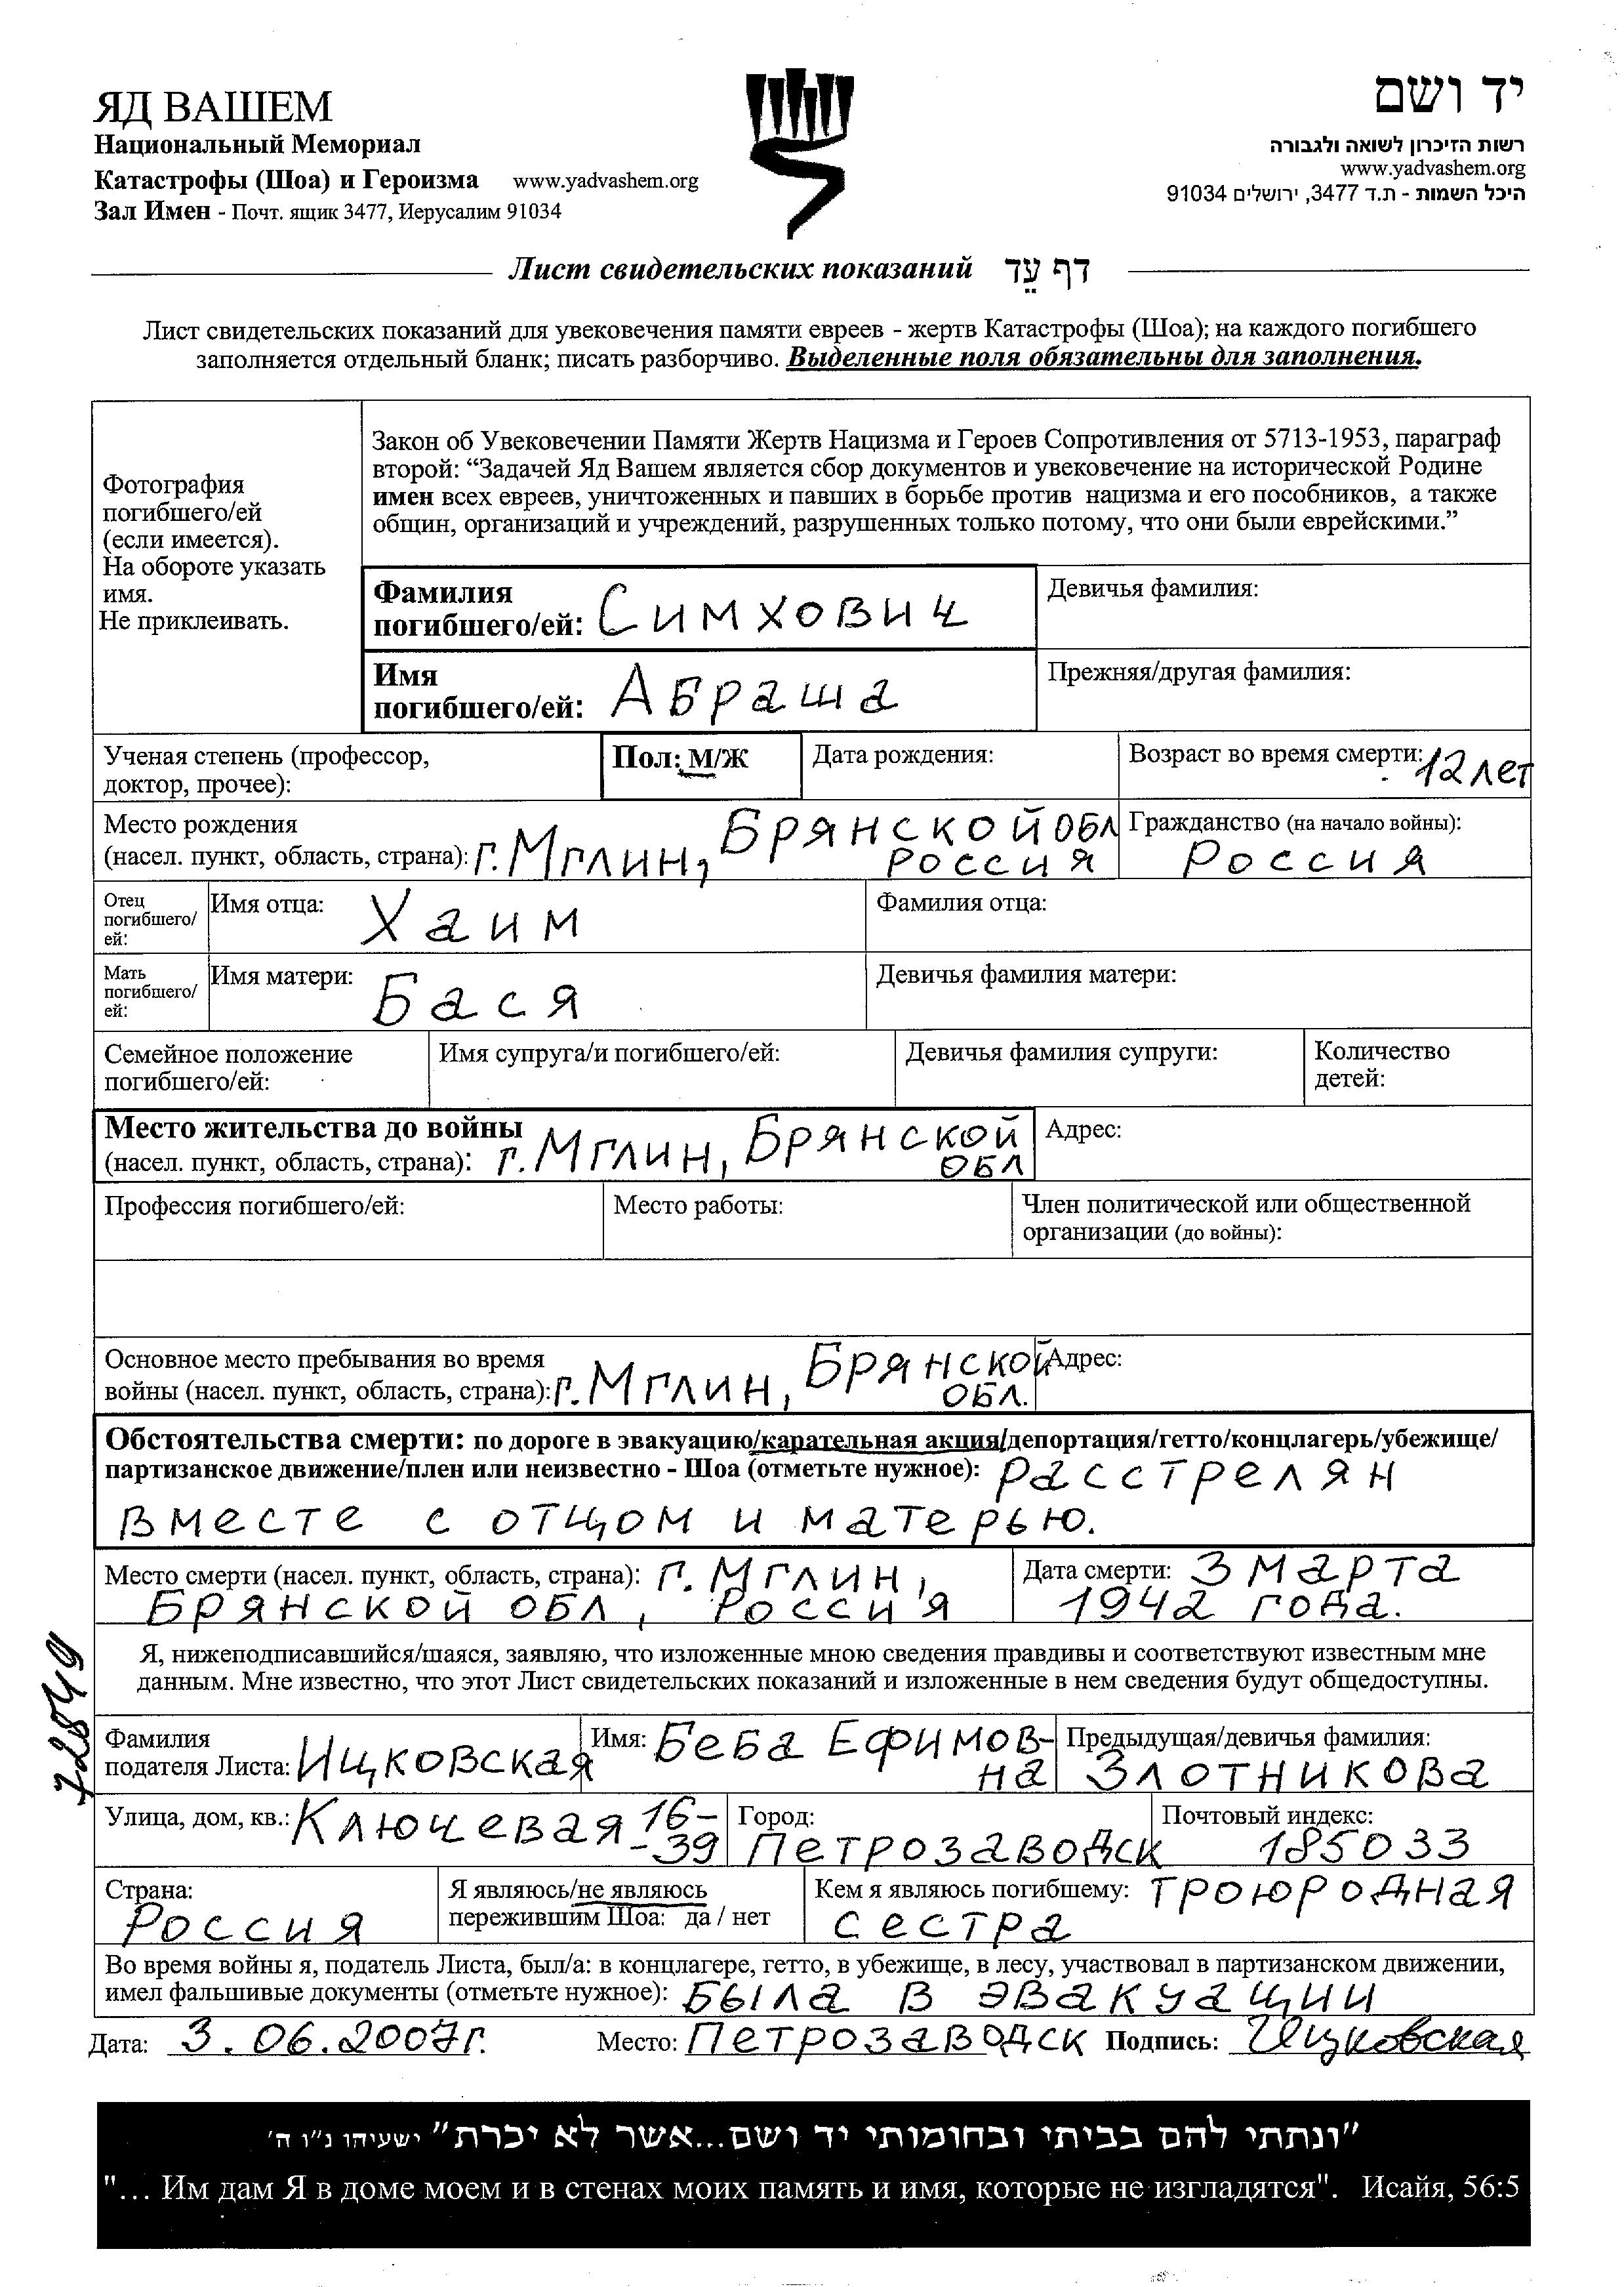 ЯД ВАШЕМ
Национальный Мемориал
Катастрофы (Шоа) и Героизма www.yadvashem.org
Зал Имен - Почт. ящик 3477, Иерусалим 91034
יד ושם
רשות הזיכרון לשואה ולגבורה
www.yadvashem.org
היכל השמות - ת.ד 3477, ירושלים 91034
Лист свидетельских показаний דף עֵד
Лист свидетельских показаний для увековечения памяти евреев - жертв Катастрофы (Шоа); на каждого погибшего
заполняется отдельный бланк; писать разборчиво. Выделенные поля обязательны для заполнения.
Фотография
погибшего/ей
(если имеется).
На обороте указать
имя.
Не приклеивать.
Закон об Увековечении Памяти Жертв Нацизма и Героев Сопротивления от 5713-1953, параграф
второй: “Задачей Яд Вашем является сбор документов и увековечение на исторической Родине
имен всех евреев, уничтоженных и павших в борьбе против нацизма и его пособников, а также
общин, организаций и учреждений, разрушенных только потому, что они были еврейскими.”
Фамилия
погибшего/ей: Симхович
Девичья фамилия:
Имя
погибшего/ей: Абраша
Прежняя/другая фамилия:
Ученая степень (профессор,
доктор, прочее):
Пол: М/Ж
Дата рождения:
Возраст во время смерти: 12 лет
Место рождения
(насел. пункт, область, страна): г. Мглин, Брянской обл
Россия
Гражданство (на начало войны):
Россия
Отец
погибшего/
ей:
Имя отца: Хаим
Фамилия отца:
Мать
погибшего/
ей:
Имя матери: Бася
Девичья фамилия матери:
Семейное положение
погибшего/ей:
Имя супруга/и погибшего/ей:
Девичья фамилия супруги:
Количество
детей:
Место жительства до войны
(насел. пункт, область, страна): г. Мглин, Брянской
обл
Адрес:
Профессия погибшего/ей:
Место работы:
Член политической или общественной
организации (до войны):
Основное место пребывания во время
войны (насел. пункт, область, страна): г. Мглин, Брянской
обл.
Адрес:
Обстоятельства смерти: по дороге в эвакуацию/карательная акция/депортация/гетто/концлагерь/убежище/
партизанское движение/плен или неизвестно - Шоа (отметьте нужное): расстрелян
вместе с отцом и матерью.
Место смерти (насел. пункт, область, страна): г. Мглин,
Брянской обл, Россия
Дата смерти: 3 марта
1942 года.
Я, нижеподписавшийся/шаяся, заявляю, что изложенные мною сведения правдивы и соответствуют известным мне
данным. Мне известно, что этот Лист свидетельских показаний и изложенные в нем сведения будут общедоступны.
72849
Фамилия
подателя Листа: Ицковская
Имя: Беба Ефимов-
на
Предыдущая/девичья фамилия:
Злотникова
Улица, дом, кв.: Ключевая 16-
-39
Город:
Петрозаводск
Почтовый индекс:
185033
Страна:
Россия
Я являюсь/не являюсь
пережившим Шоа: да / нет
Кем я являюсь погибшему: троюродная
сестра
Во время войны я, податель Листа, был/а: в концлагере, гетто, в убежище, в лесу, участвовал в партизанском движении,
имел фальшивые документы (отметьте нужное): была в эвакуации
Дата: 3.06.2007г. Место: Петрозаводск Подпись: Ицковская
"ונתתי להם בביתי ובחומותי יד ושם...אשר לא יכרת" ישעיהו נ"ו ה'
"... Им дам Я в доме моем и в стенах моих память и имя, которые не изгладятся". Исайя, 56:5